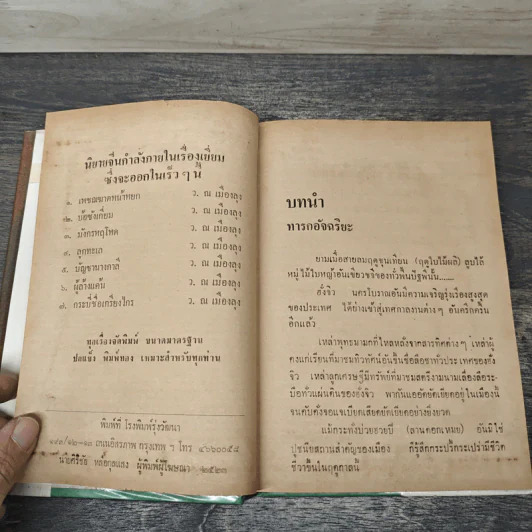 นิยายจีนกำลังภายในเรื่องเยี่ยม
ซึ่งจะออกในเร็ว ๆ นี้
๑. เพชฌฆาตหน้าหยก ว. ณ เมืองลุง
๒. บ้อซังเกี่ยม ว. ณ เมืองลุง
๓. มังกรหลุโหด ว. ณ เมืองลุง
๔. ลูกทะเล ว. ณ เมืองลุง
๕. บัญชานางกาลี ว. ณ เมืองลุง
๖. ผู้ล้างแค้น ว. ณ เมืองลุง
๗. กระบี่ชื่อเกรียงไกร ว. ณ เมืองลุง
ทุกเรื่องจัดพิมพ์ ขนาดมาตรฐาน
ปกแข็ง พิมพ์ทอง เหมาะสำหรับทุกท่าน
พิมพ์ที่ โรงพิมพ์รุ่งวัฒนา
ถนนอิสรภาพ กรุงเทพ ฯ โทร ๔๖๒๐๐๕๘
ผู้พิมพ์ผู้โฆษณา ๒๕๒๓
บทนำ
ทารกอัจฉริยะ
ยามเมื่อสายลมฤดูชุนเทียน (ฤดูใบไม้ผลิ) ลูบไล้
หมู่ไม้ใบหญ้าอันเขียวขจีของทั่วพื้นปัฐพีนั้น.......
ฮั่งจิว นครโบราณอันมีความเจริญรุ่งเรืองสูงสุด
ของประเทศ ได้ย่างเข้าสู่เทศกาลงานต่าง ๆ อันครึกครื้น
อีกแล้ว
เหล่าพุทธมามกที่ไหลหลั่งจากสารทิศต่าง ๆ เหล่าผู้
คงแก่เรียนที่มาชมทิวทัศน์อันขึ้นชื่อลือชาทั่วประเทศของฮั่ง
จิว เหล่าลูกเศรษฐีมีทรัพย์ที่มาชมสตรีงามนามเลื่องลือระ
บือทั่วแผ่นดินของฮั่งจิว พากันแออัดยัดเยียดอยู่ในเมืองนี้
จนคับคั่งจอแจเบียดเสียดยัดเยียดอย่างยิ่งยวด
แม้กระทั่งป่วยฮวยบี้ (ลานดอกเหมย) อันมิใช่
ปูชนียสถานสำคัญของเมือง ก็รู้สึกกระปรี้กระเปร่ามีชีวิต
ชีวาขึ้นในฤดูกาลนี้